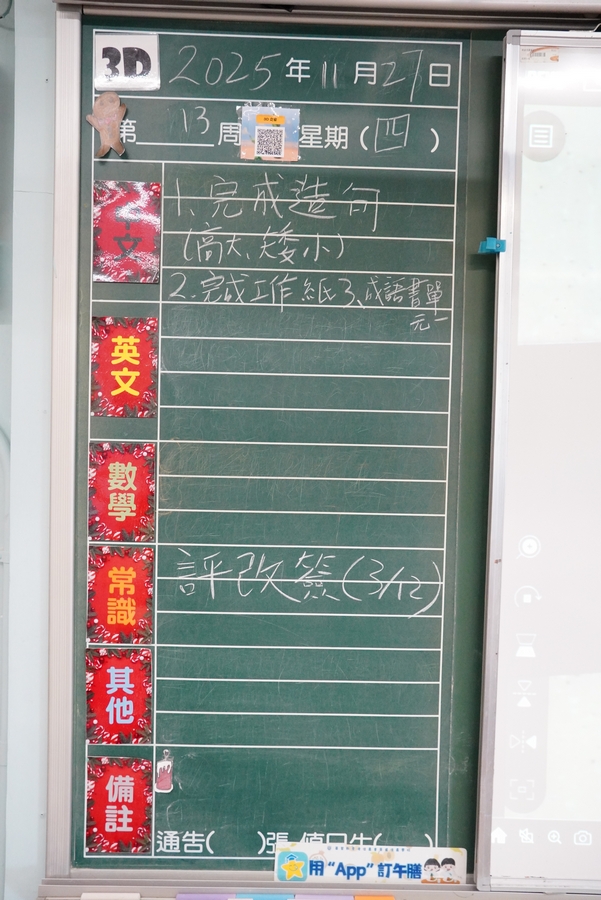 3D 2025年11月27日
第 13 周 星期(四)
中文
1.完成造句
(高大、矮小)
2.完成工作紙3、成語書單
元一
英文
數學
常識
評改簽(3/12)
其他
備註
通告( )張 值日生( )
用“App”訂午膳